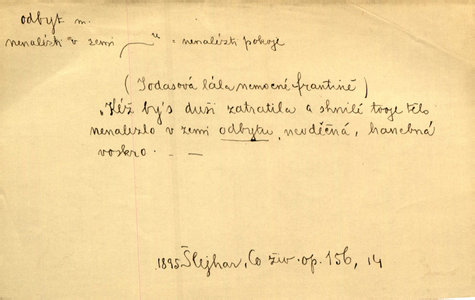 odbyt m.
nenalézti v zemi —u = nenalézti pokoje
(Jodasová lála nemocné Frantině)
„Kéž by's duši zatratila a shnilé tvoje tělo
nenalezlo v zemi odbytu, nevděčná, hanebná
voskro. — —
1895 Šlejhar, Co živ. op. 156, 14